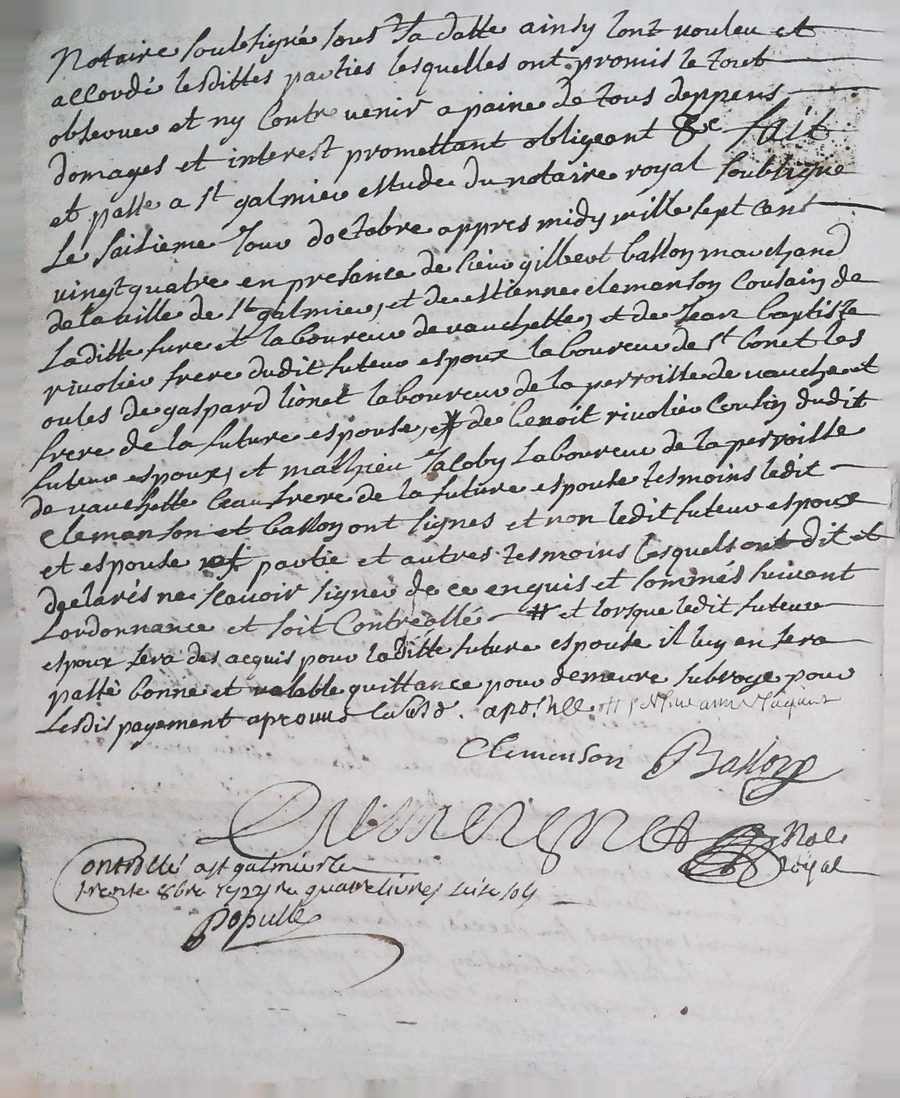 Notaire soubsigné sous sa datte ainsy lont voulu et
accordé lesdittes parties lesquelles ont promis le tout
observer et ny contrevenir a paine de tous deppens
domages et interest promettant obligeant &c fait
et passe a st galmier estude du notaire royal soubsigne
Le saisieme Jour doctobre appres midy mille sept cent
vinct quatre en presance de sieur gilbert Balloy marchand
de la ville de st galmier, et de estienne clemanson Cousin de
Laditte fure et laboureur de vauchette, et de Jean baptiste
rivolier frere dudit futeur espoux laboureur de st bonet les
oules de gaspard lionet laboureur de la perroille de vauche et
frere de la future espouse, et de benoit rivolier Cousin dudit
futeur espoux, et mathieu Jacoby laboureur de la perroille
de vauchette beaufrere de la future espouse tesmoins ledit
clemanson et balloy ont signes et non ledit futeur espoux
et espouse partie et autres tesmoins lesquels ont dit et
declarés ne scavoir signer de ce enquis et sommés suivant
Lordonnance et soit Controllé # et lorsque ledit futeur
espoux sera des acquis pour laditte future espouse il luy en sera
passé bonne et valable quittance pour demeure subroge pour
Lesdis payement apostille
Clemenson Balloy
Nore
Royal
Controllé a st galmier le
trente 8bre 1724 re quatre livres seise sols
Populle